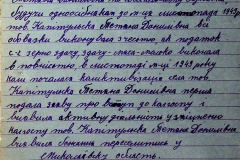 Будучи односібником до м-ця листопада 1949 р
тов. Капітульска Тетяна Денисівна всі
обов'язки виконувала з честю, як податок
с-г зерно здачу, здачу м'ясо-масла виконала
в повністю, в листопаді м-ці 1949 року
нам почалася колективізація села тов.
Капітульска Тетяна Денисівна перша
подала заяву про вступ до колгоспу і
виявила активну діяльність в зміцненні
колгоспу тов. Капітульска Тетяна Денисівна
виявила бажання переселитися у
Миколаївську область.